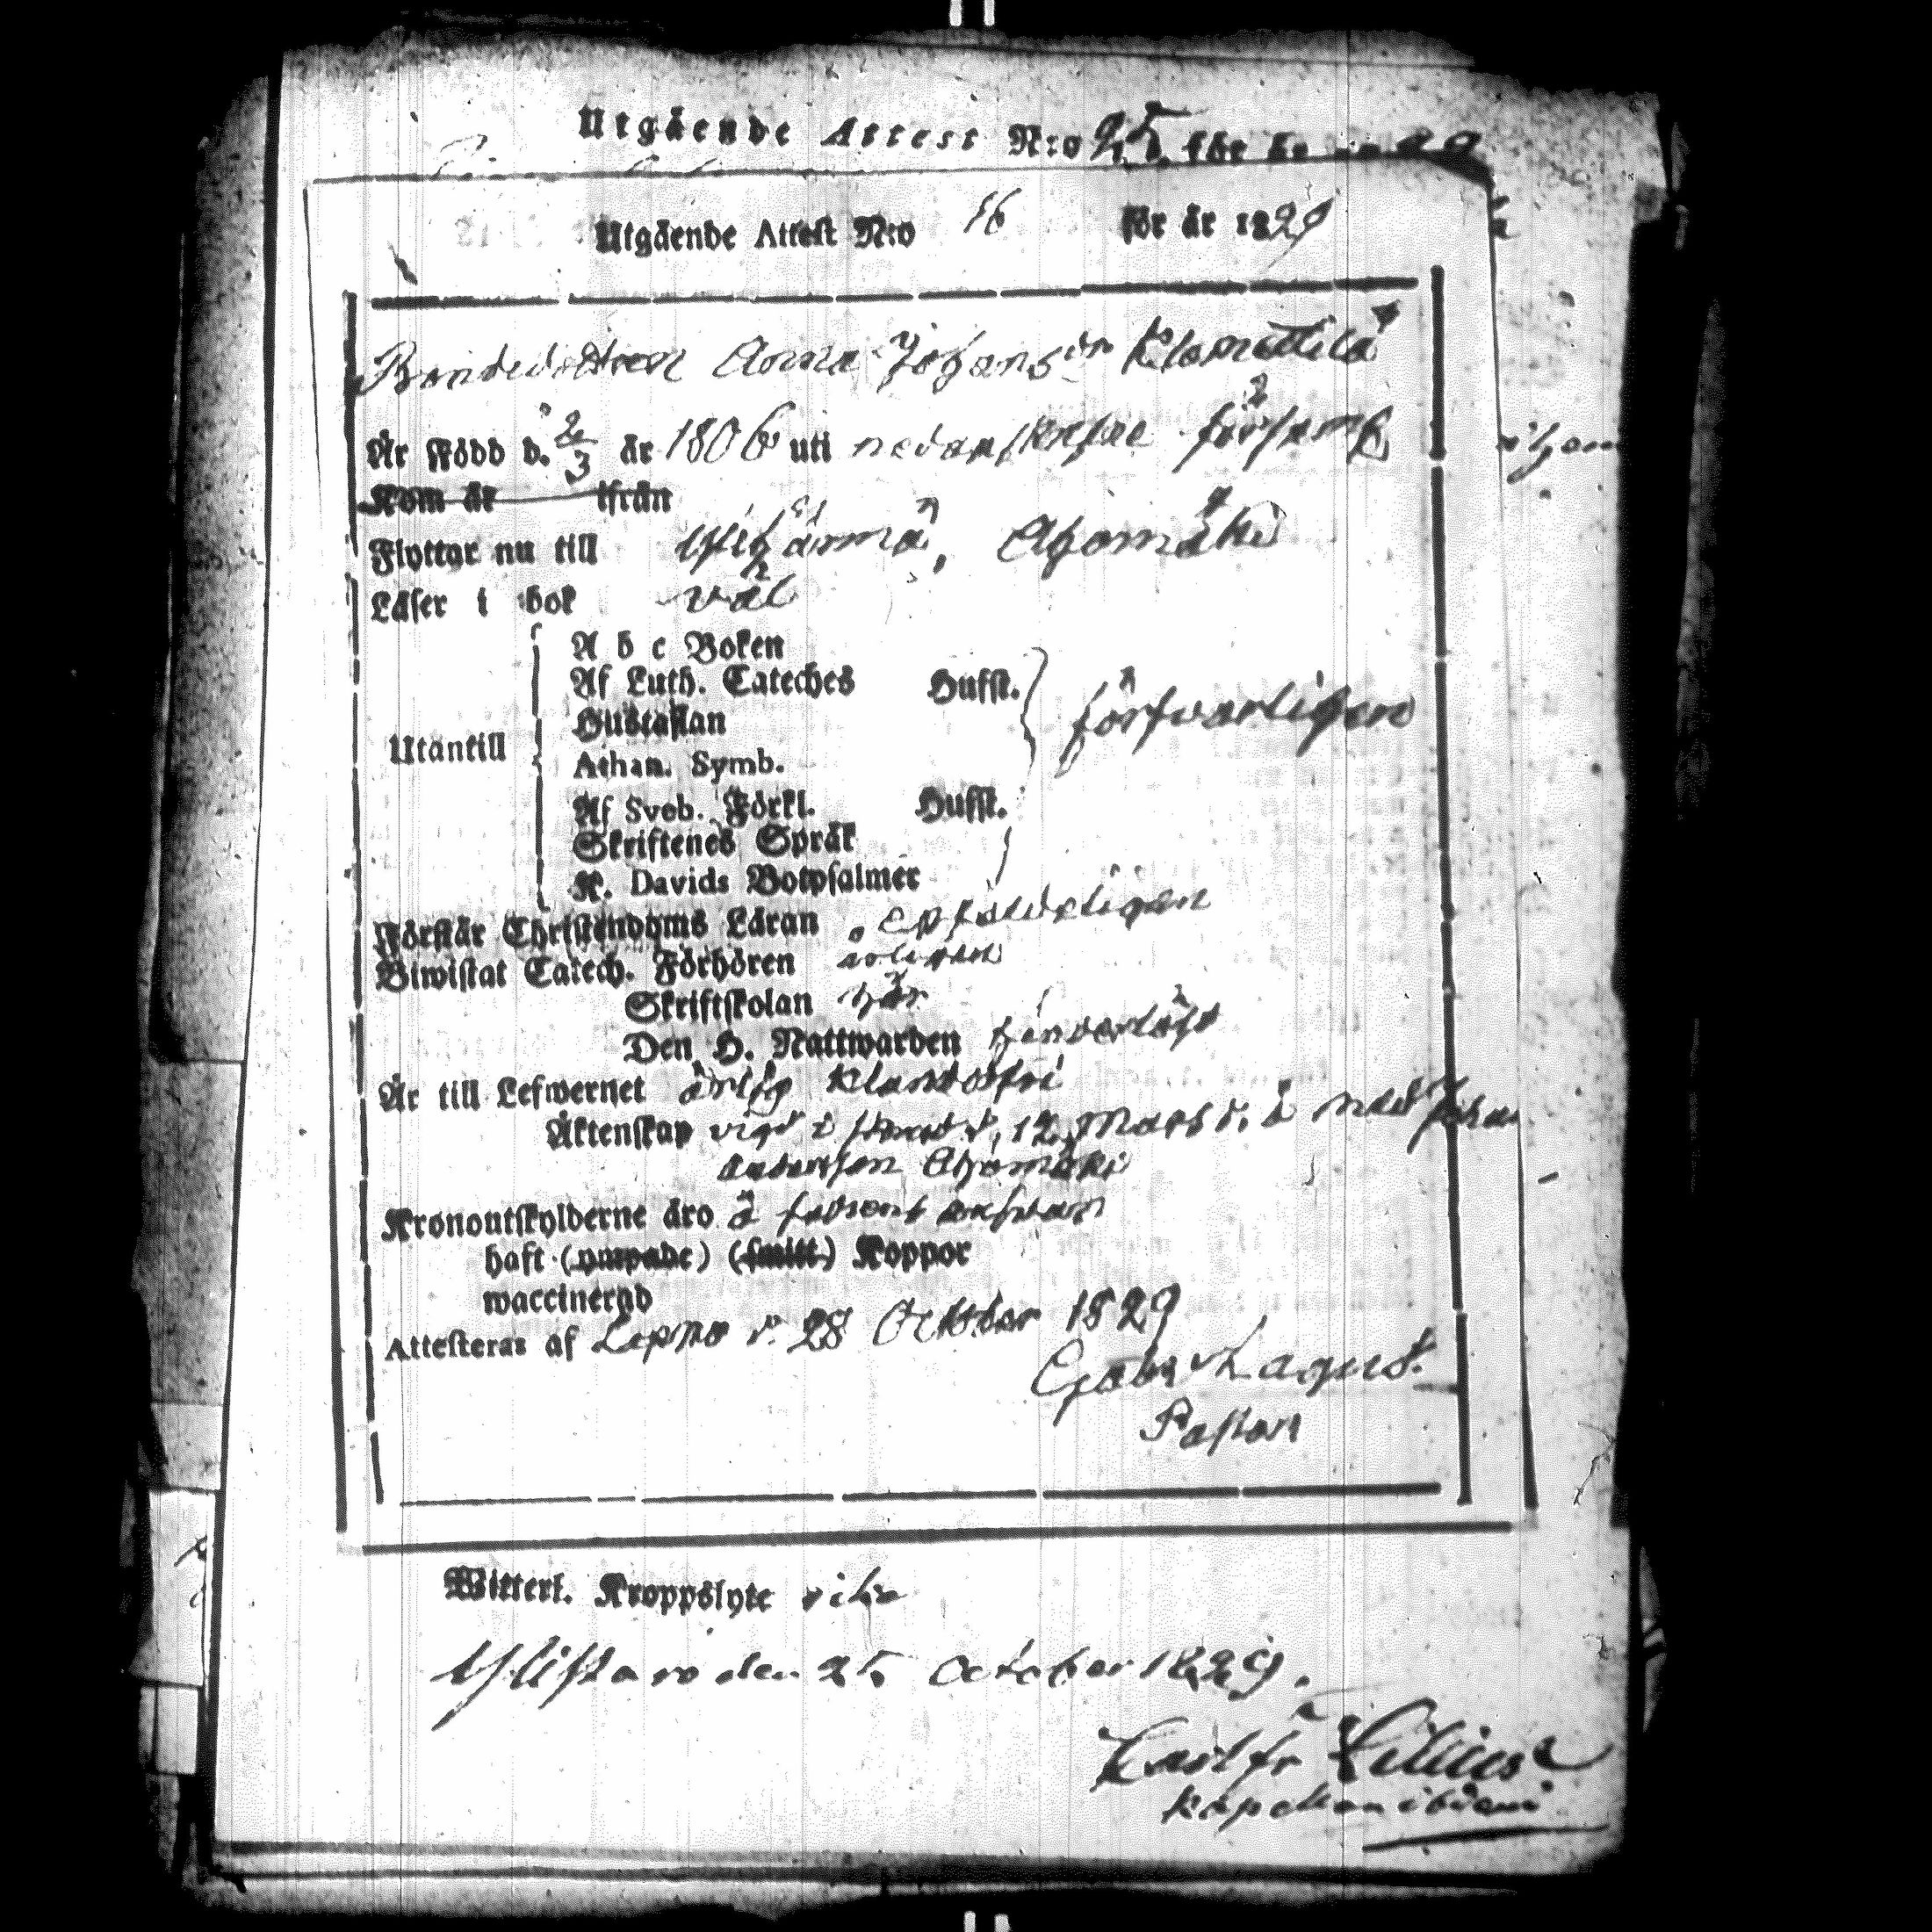 Utgående Attest N:o 25. för år 1829
Utgående Attest N:o 16 för år 1829
Bondedottren Anna Johansdr Klemettilä
Är Född d. 2/3 år 1806 uti nedanskrefne förfaml
Kom år ifrån
Flyttar nu till Ylihärmä, Ahomäki
Läser i bok väl
A b c Boken
Af Luth. Cateches Hufst.
Hustaflan
Utantill
försvarligen
Athan. Symb.
Af Sveb. Förkl. Hufst.
Skriftenes Språk
K. Davids Botpsalmer
Förstår Christendoms Läran försvarligen
Biwistat Catech. Förhören årligen
Skriftskolan här
Den H. Nattwarden
Är till Lefwernet ärlig klanderfri
Äktenskap vigd i 12 Mars d. å med Johan
Andersson Ahomäki
Kronoutskylderne äro å
haft (ympade) (smitt) Koppor
waccinerad
Attesteras af Lappo d. 28 October 1829
Gabr Lagus.
Pastor
Witterl. Kroppslyte icke
Ylistaro den 25 October 1829.
Carl Fr Lilius
Kapellan ibidem